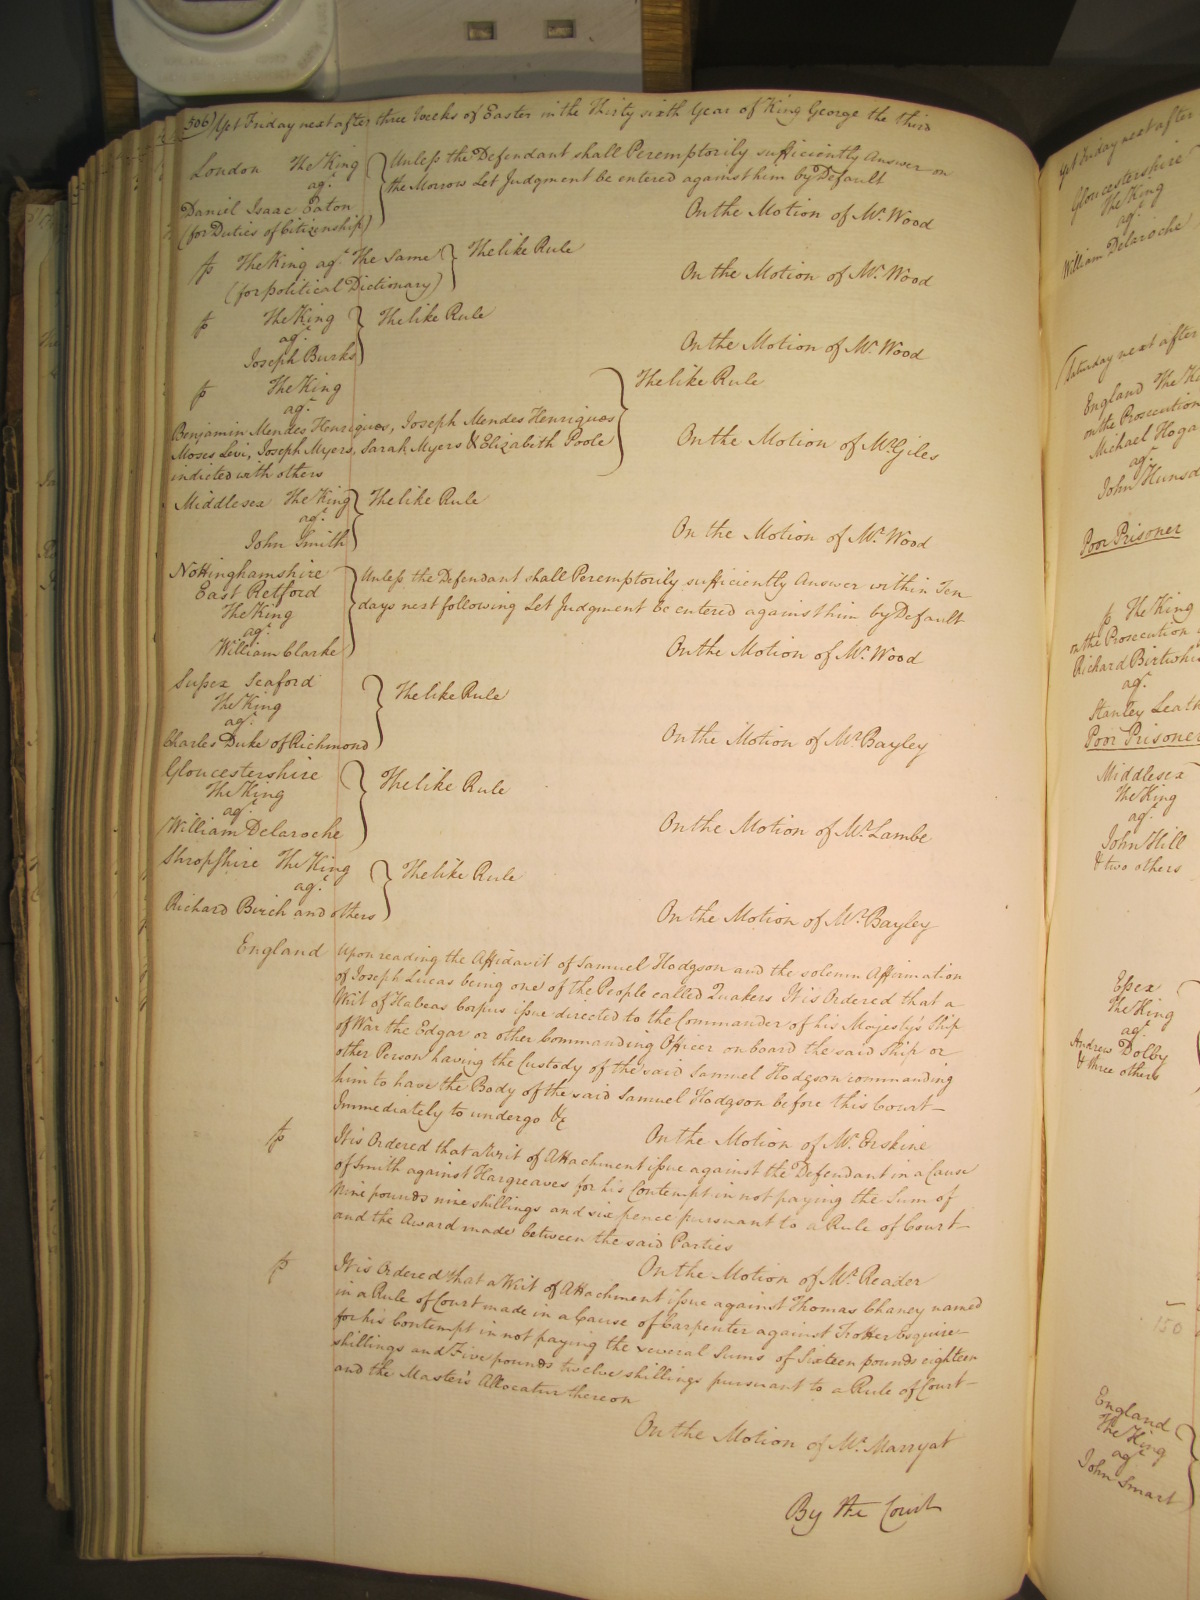 506) Yet Friday next after three Weeks of Easter in the Thirty sixth Year of King George the third
London The King
agt.
Daniel Isaac Eaton
(for Duties of Citizenship)
Unless the Defendant shall Peremptorily sufficiently Answer on
the Morrow Let Judgment be entered against him by Default
On the Motion of Mr. Wood
The King agt. The Same
(for political Dictionary)
The like Rule
On the Motion of Mr. Wood
The King
agt.
Joseph Burks
The like Rule
On the Motion of Mr. Wood
The King
agt.
Benjamin Mendes Henriques, Joseph Mendes Henriques
Moses Levi, Joseph Myers, Sarah Myers & Elizabeth Poole
indicted with others
The like Rule
On the Motion of Mr. Giles
Middlesex The King
agt.
John Smith
The like Rule
On the Motion of Mr. Wood
Nottinghamshire
East Retford
The King
agt.
William Clarke
Unless the Defendant shall Peremptorily sufficiently Answer within Ten
days next following Let Judgment be entered against him by Default
On the Motion of Mr. Wood
Sussex Seaford
The King
agt.
Charles Duke of Richmond
The like Rule
On the Motion of Mr. Bayley
Gloucestershire
The King
agt.
William Delaroche
The like Rule
On the Motion of Mr. Lambe
Shropshire The King
agt.
Richard Birch and others
The like Rule
On the Motion of Mr. Bayley
England Upon reading the Affidavit of Samuel Hodgson and the solemn Affirmation
of Joseph Lucas being one of the People called Quakers It is Ordered that a
Writ of Habeas Corpus issue directed to the Commander of his Majesty's Ship
of War the Edgar or other Commanding Officer on board the said Ship or
other Person having the Custody of the said Samuel Hodgson commanding
him to have the Body of the said Samuel Hodgson before this Court
Immediately to undergo &c
On the Motion of Mr. Erskine
It is Ordered that a Writ of Attachment issue against the Defendant in a Cause
of Smith against Hargreaves for his Contempt in not paying the Sum of
Nine pounds nine shillings and six pence pursuant to a Rule of Court
and the Award made between the said Parties
On the Motion of Mr. Reader
It is Ordered that a Writ of Attachment issue against Thomas Chaney named
in a Rule of Court made in a Cause of Carpenter against Trotter Esquire
for his Contempt in not paying the several Sums of Sixteen pounds eighteen
shillings and Five pounds twelve shillings pursuant to a Rule of Court
and the Master's Allocatur thereon
On the Motion of Mr. Marryat
By the Court
Yet Friday next after
Gloucestershire
The King
agt.
William Delaroche
Saturday next after
England The
on the Prosecution
Michael
agt.
John
Poor Prisoner
The King
on the Prosecution
Richard
agt.
Stanley
Poor Prisoner
Middlesex
The King
agt.
John Hill
& two others
Essex
The King
agt.
Andrew Dolby
& three others
150
England
The King
agt.
John Smart